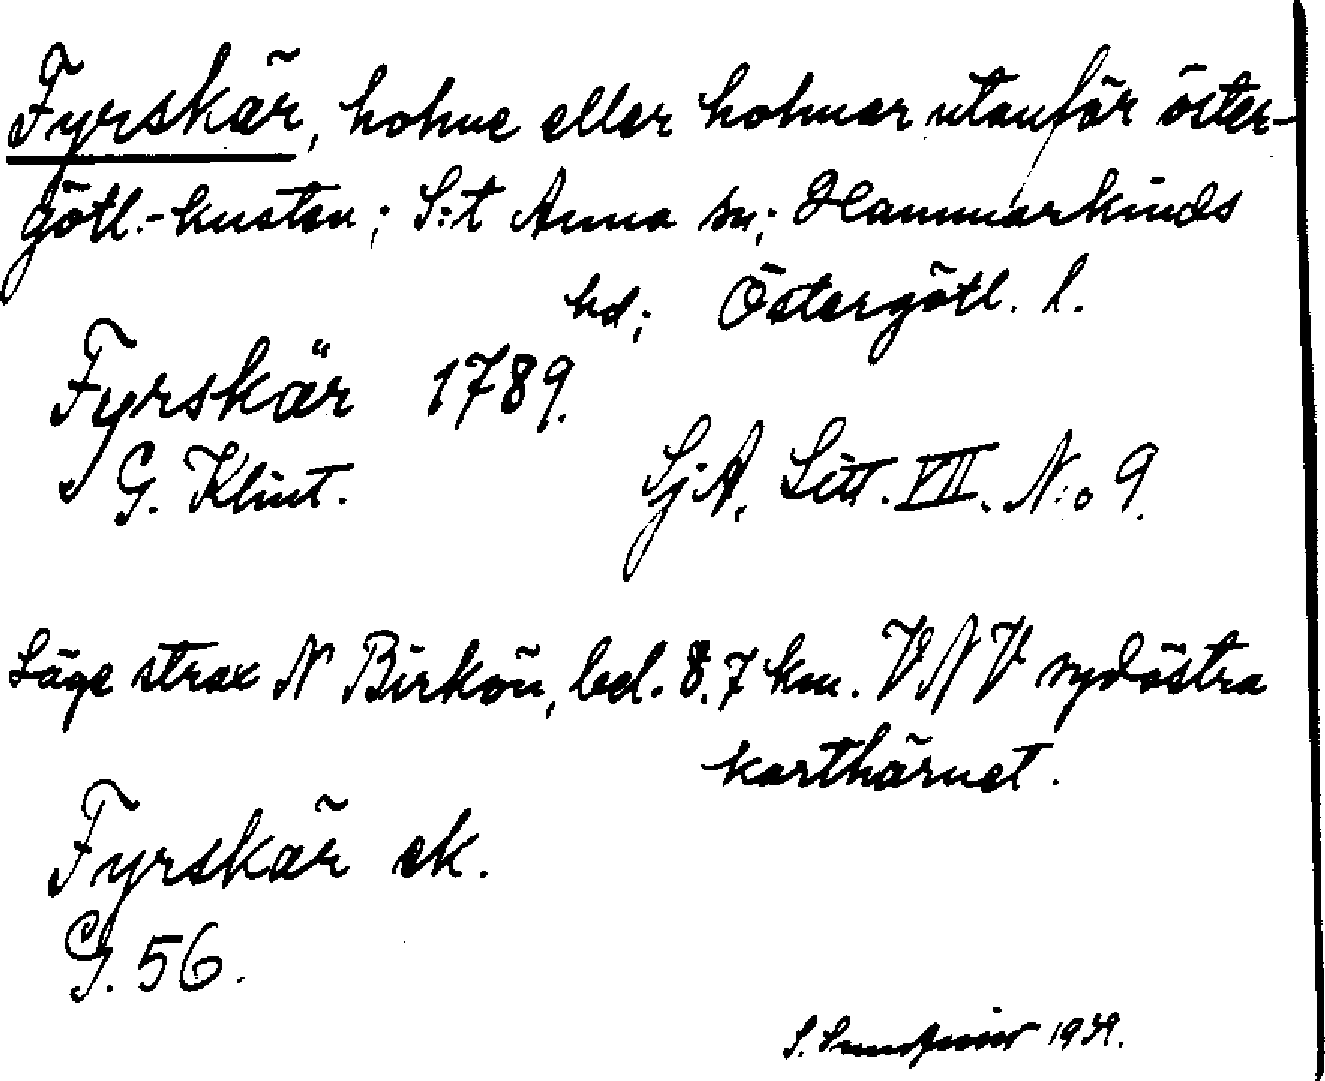 Fyrskär, holme eller holmar utanför öster-
götl.-kusten; S:t Anna sn; Hammarkinds
hd; Östergötl. l.
Fyrskär 1789.
G. Klint. Sj.A. Litt. VII. N:o 9.
Läge strax N Birkön, bel. 8.7 km. VNV sydöstra
karthörnet.
Fyrskär ek.
G. 56.
S. 1939.